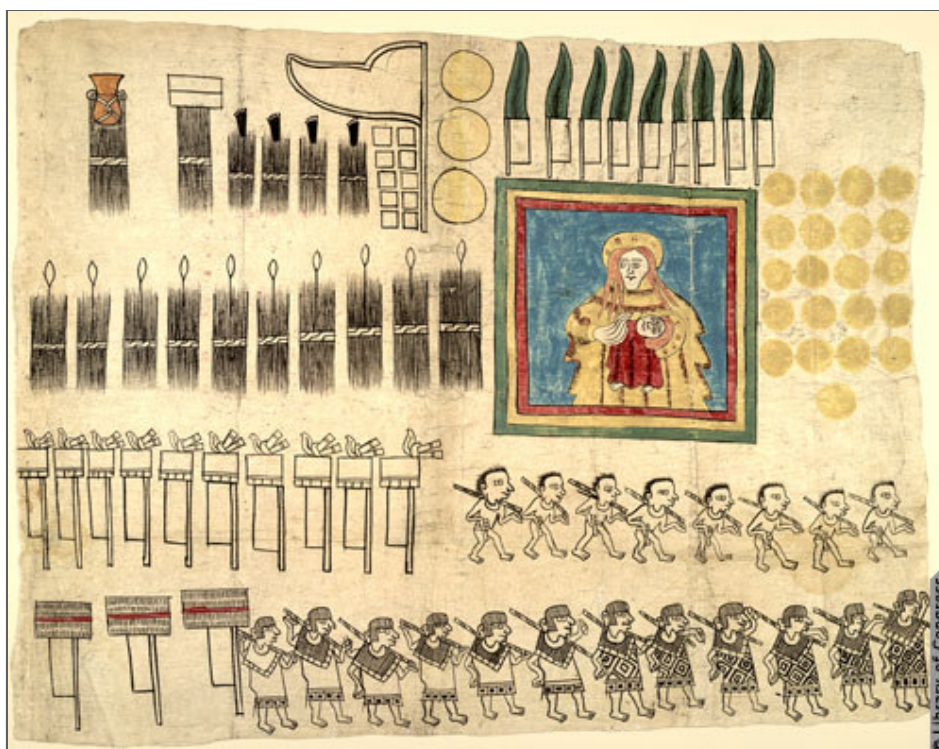 Library of Congress